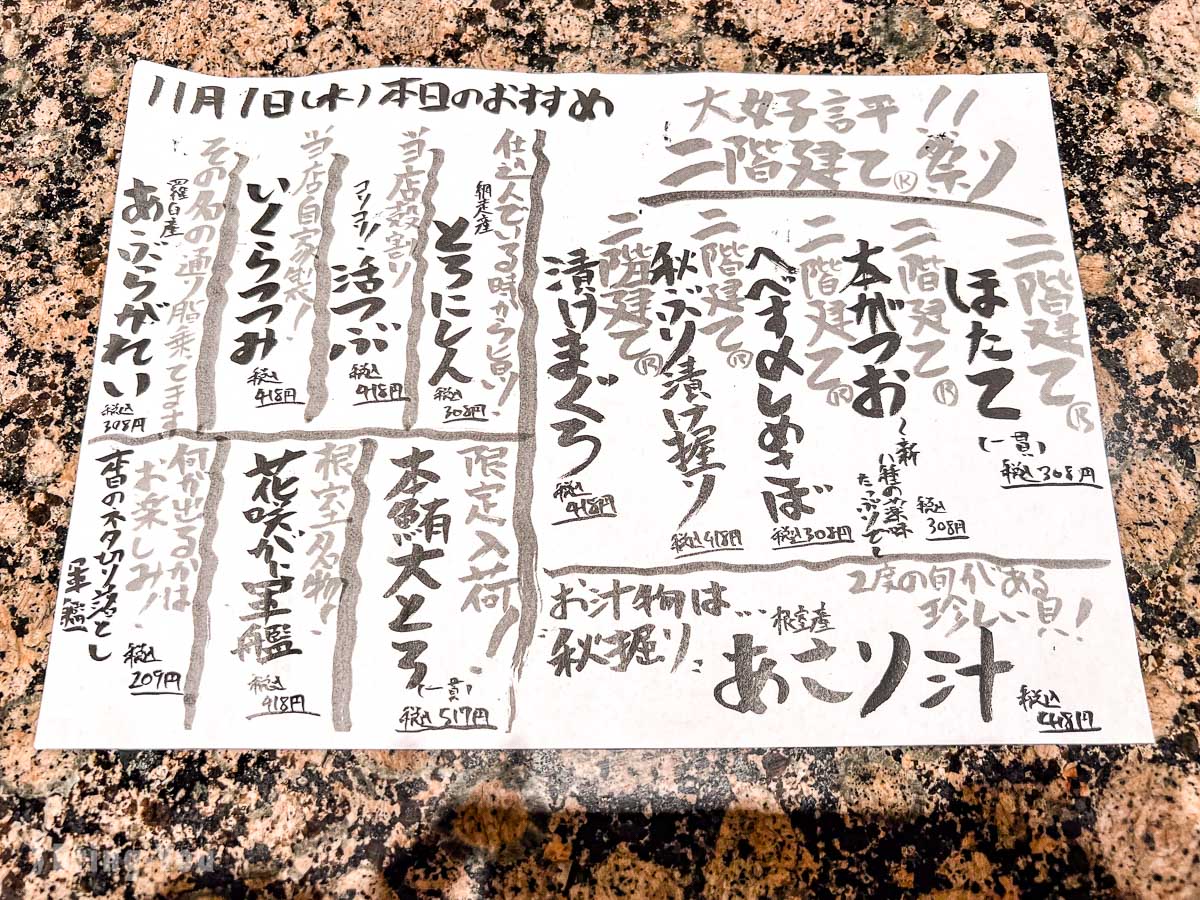 11月1日(水)本日のおすすめ
大好評!!
二階建て®祭り
二階建て®
ほたて
(一貫)
税込308円
二階建て®
本がつお
〜新
八種の薬味
たっぷりで〜
税込
308円
二階建て®
へべす〆しめさば
税込308円
二階建て®
秋ぶり漬け握り
税込418円
二階建て®
漬けまぐろ
税込
418円
仕込んでいる時から旨い!
網走産
とろにしん
税込
308円
当店殻割り
コリコリ!
活つぶ
税込
418円
当店自家製!
いくらつつみ
税込
418円
その名の通り脂乗ってます
羅臼産
あぶらがれい
税込
308円
限定入荷!
本鮪大とろ
(一貫)
税込517円
根室名物!
花咲がに軍艦
税込
418円
何が出るかは
お楽しみ!
本日のネタ切り落とし
軍艦
税込
209円
お汁物は…
秋掘り
2度の旬がある
珍しい貝!
根室産
あさり汁
税込
418円